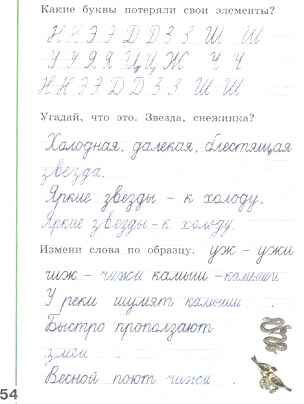 Какие буквы потеряли свои элементы?
Н Н Э Э Д Д З З Ш Ш
У У Я Я Ц Ц Ж Ч Ч
Н Н Э Э Д Д З З Ш Ш
Угадай, что это. Звезда, снежинка?
Холодная, далекая, блестящая
звезда.
Яркие звезды – к холоду.
Яркие звезды – к холоду.
Измени слова по образцу. уж – ужи
чиж – чижи камыш – камыши
У реки шумят камыши .
Быстро проползают
змеи .
Весной поют чижи .
54